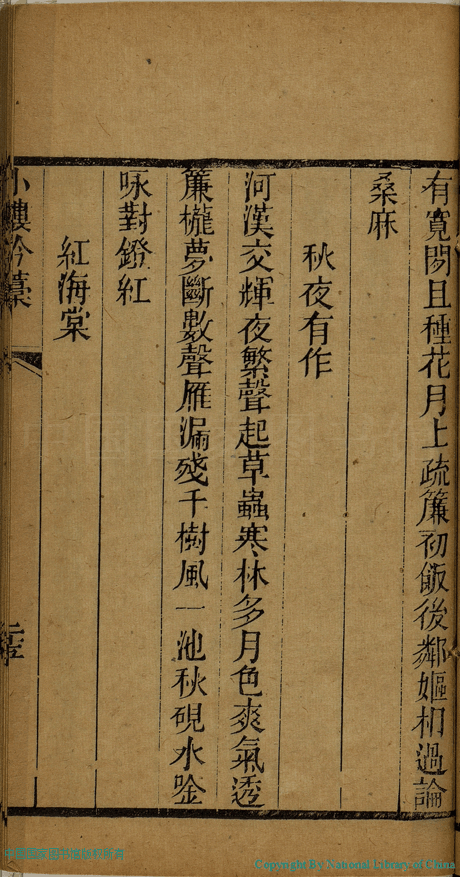 有寬閒且種花月上疏簾初飯後鄰嫗相過論
桑麻
秋夜有作
河漢交輝夜繁聲起草蟲寒林多月色爽氣透
簾櫳夢斷數聲雁漏殘千樹風一池秋硯水唫
咏對鐙紅
紅海棠
小樓吟藁
Copyright By National Library of China